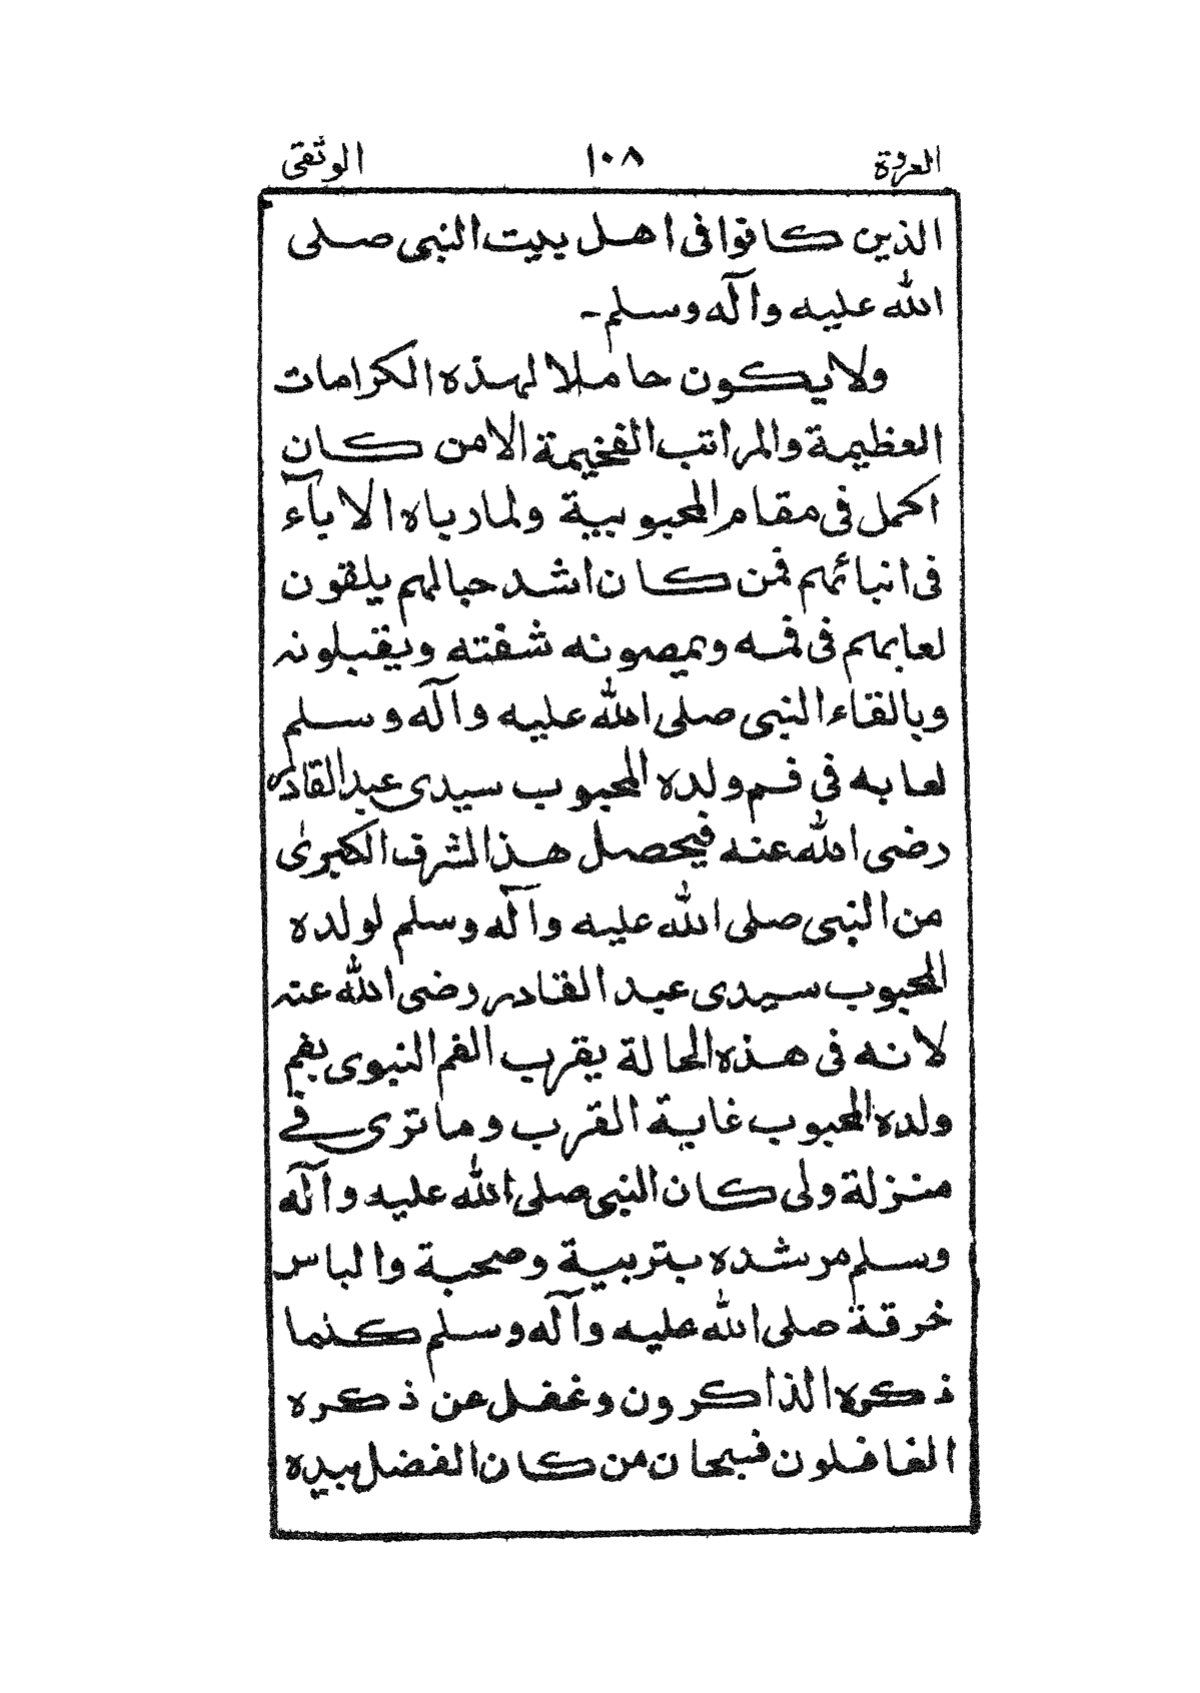 العروة ١٠٨ الوثقى
الذين كانوا فى اهل بيت النبى صلى
الله عليه وآله وسلم۔
ولا يكون حاملا لهذه الكرامات
العظيمة والمراتب الفخيمة الا من كان
اكمل فى مقام المحبوبية ولمارياه الا باء
فى انبائهم فمن كان اشد حبالهم يلقون
لعابهم فى فمه ويمصونه شفته ويقبلونه
وبالقاء النبى صلى الله عليه وآله وسلم
لعابه فى فم ولده المحبوب سيدى عبدالقادر
رضى الله عنه فيحصل هذا الشرف الكبرىٰ
من النبى صلى الله عليه وآله وسلم لولده
المحبوب سيدى عبد القادر رضى الله عنه
لانه فى هذه الحالة يقرب الفم النبوى بفم
ولده المحبوب غاية القرب وما ترى فے
منزلة ولى كان النبى صلى الله عليه وآله
وسلم مرشده بتربية وصحبة والباس
خرقة صلى الله عليه وآله وسلم كنما
ذكره الذاكرون وغفل عن ذكره
الغافلون فسبحان من كان الفضل بيده